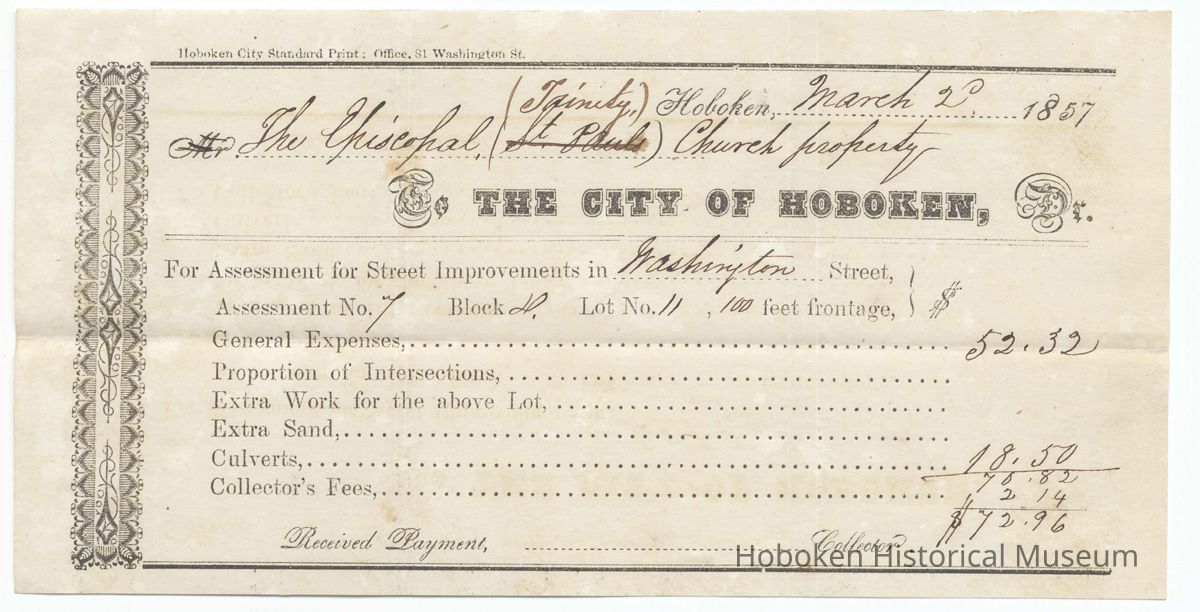 Hoboken City Standard Print; Office, 81 Washington St.
(Trinity,) Hoboken, March 2d 1857
Mr. The Episcopal, (St. Pauls) Church property
To THE CITY OF HOBOKEN, Dr.
For Assessment for Street Improvements in Washington Street,
Assessment No. 7 Block Lot No. 11, 100 feet frontage, $
General Expenses, 52.32
Proportion of Intersections,
Extra Work for the above Lot,
Extra Sand,
Culverts, 18.50
70.82
Collector's Fees, 2 14
$72.96
Received Payment, Collector
Hoboken Historical Museum